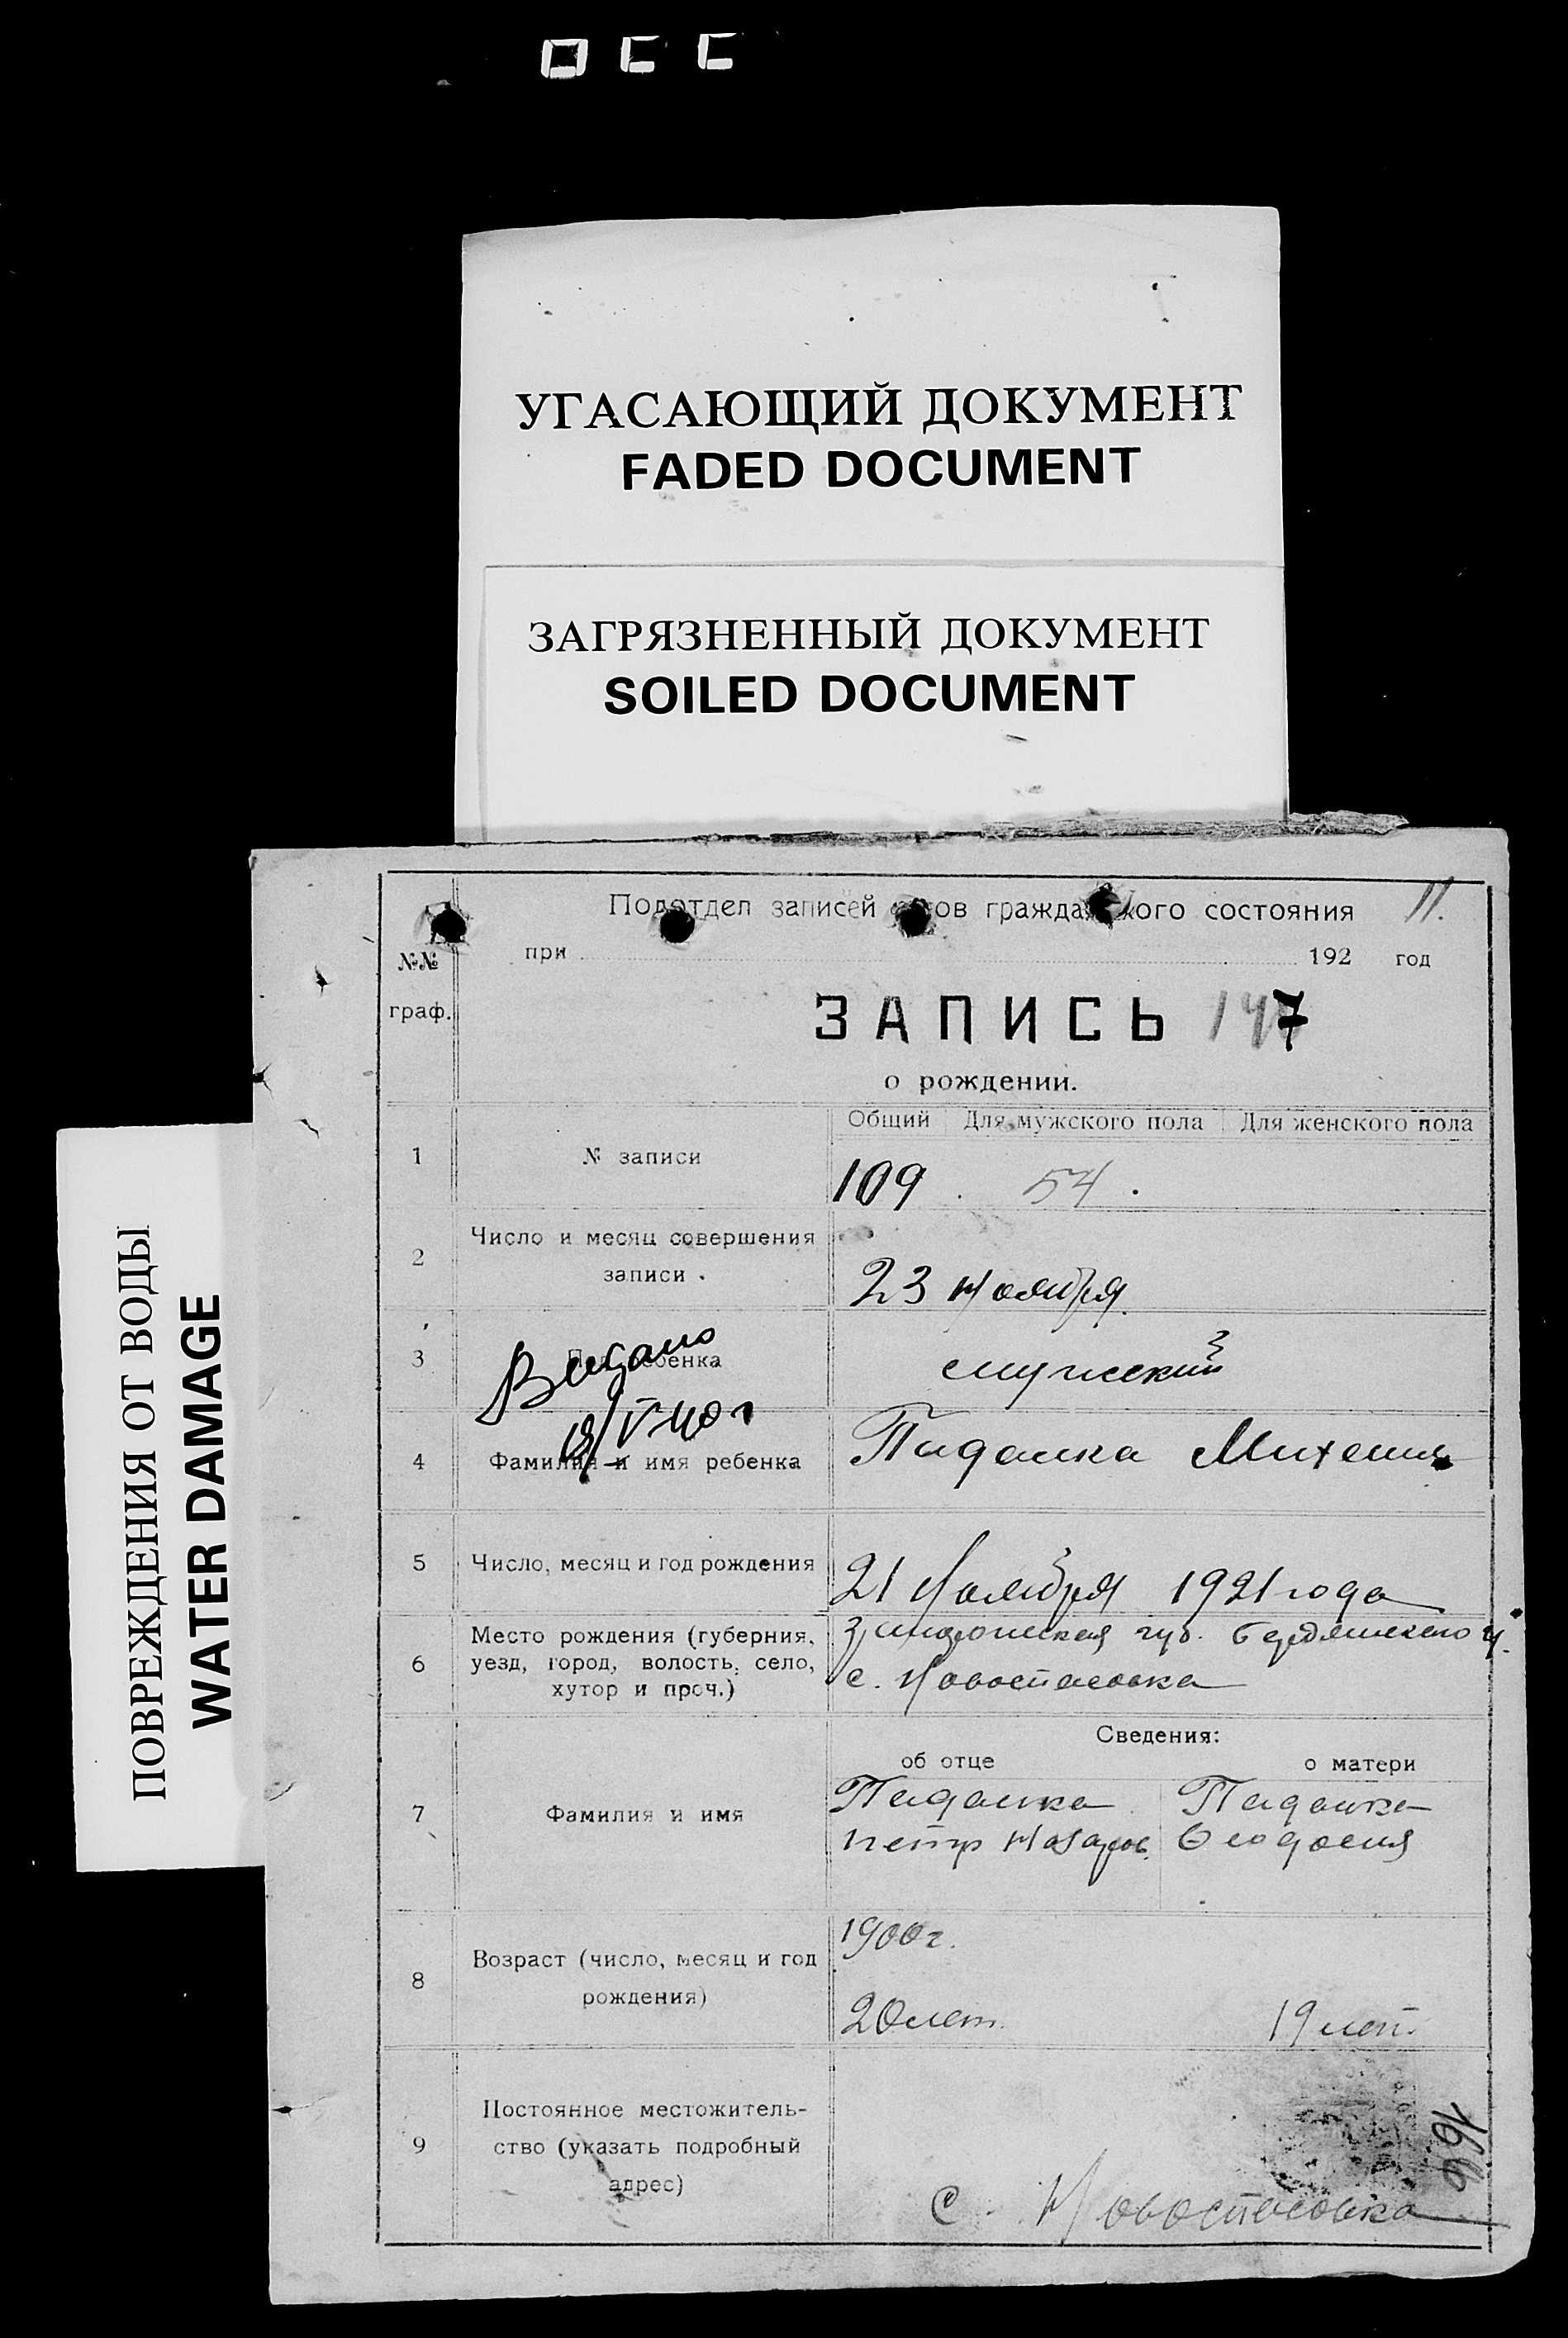 УГАСАЮЩИЙ ДОКУМЕНТ
FADED DOCUMENT
ЗАГРЯЗНЕННЫЙ ДОКУМЕНТ
SOILED DOCUMENT
ПОВРЕЖДЕНИЯ ОТ ВОДЫ
WATER DAMAGE
11.
Подотдел записей актов гражданского состояния
при 192 год
№№ граф.
ЗАПИСЬ 147
о рождении.
Общий Для мужского пола Для женского пола
1 № записи 109 . 54 .
2 Число и месяц совершения
записи . 23 Ноября
3 Пол ребенка мужский
Видано
4 Фамилия и имя ребенка Пидашка Михаил
5 Число, месяц и год рождения 21 Ноября 1921 года
6 Место рождения (губерния,
уезд, город, волость, село,
хутор и проч.)
губ. Бердянского у.
с. Новоспасовка
Сведения:
об отце о матери
7 Фамилия и имя
Пидашка Пидашка
Петр Назаров. Феодосия
8 Возраст (число, месяц и год
рождения)
1900 г.
20 лет. 19 лет.
9 Постоянное местожитель-
ство (указать подробный
адрес)
с. Новоспасовка
166